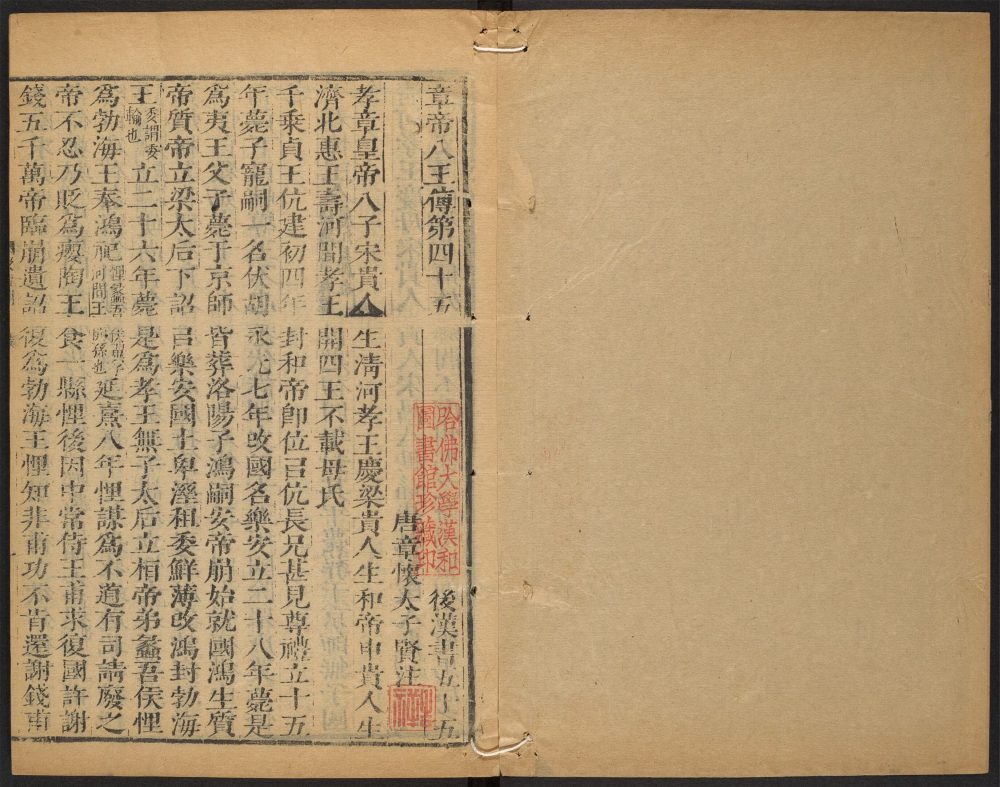 章帝八王傳第四十五 後漢書五十五
唐章懷太子賢注
孝章皇帝八子宋貴人生清河孝王慶梁貴人生和帝申貴人生
濟北惠王壽河間孝王開四王不載母氏
千乘貞王伉建初四年封和帝即位㠯伉長兄甚見尊禮立十五
年薨子寵嗣一名伏胡永元七年改國名樂安立二十八年薨是
為夷王父子薨于京師皆葬洛陽子鴻嗣安帝崩始就國鴻生質
帝質帝立梁太后下詔㠯樂安國土卑溼租委鮮薄改鴻封勃海
王委謂委輸也立二十六年薨是為孝王無子太后立桓帝弟蠡吾侯悝
為勃海王奉鴻祀悝蠡吾侯翼子河間王開孫也延熹八年悝謀為不道有司請廢之
帝不忍乃貶為癭陶王食一縣悝後因中常侍王甫求復國許謝
錢五千萬帝臨崩遺詔復為勃海王悝知非甫功不肯還謝錢甫
哈佛大學漢和圖書館珍藏印